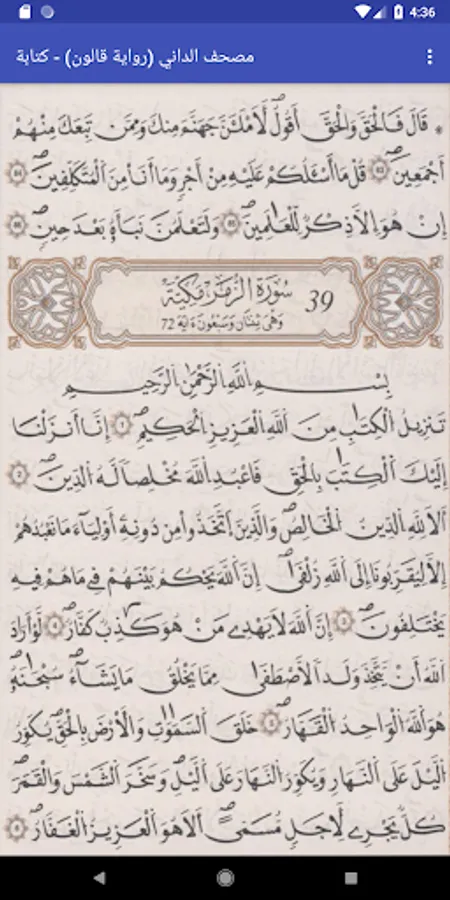 4:36
مصحف الداني (رواية قالون) - كتابة
قَالَ فَالْحَقَّ وَالْحَقَّ أَقُولُ لَأَمْلَأَنَّ جَهَنَّمَ مِنكَ وَمِمَّن تَبِعَكَ مِنْهُمُ
أَجْمَعِينَ قُلْ مَا أَسْـَٔلُكُمْ عَلَيْهِ مِنْ أَجْرٍ وَمَا أَنَا مِنَ الْمُتَكَلِّفِينَ
إِنْ هُوَ إِلَّا ذِكْرٌ لِّلْعَٰلَمِينَ وَلَتَعْلَمُنَّ نَبَأَهُۥ بَعْدَ حِينٍ
39 سُورَةُ الزُّمَرِ مَكِّيَّةٌ
وَهْيَ ثِنْتَانِ وَسَبْعُونَ ءَايَةً 72
بِسْمِ اللَّهِ الرَّحْمَٰنِ الرَّحِيمِ
تَنزِيلُ الْكِتَٰبِ مِنَ اللَّهِ الْعَزِيزِ الْحَكِيمِ ١ إِنَّا أَنزَلْنَا
إِلَيْكَ الْكِتَٰبَ بِالْحَقِّ فَاعْبُدِ اللَّهَ مُخْلِصًا لَّهُ الدِّينَ ٢
أَلَا لِلَّهِ الدِّينُ الْخَالِصُ وَالَّذِينَ اتَّخَذُوا مِن دُونِهِ أَوْلِيَاءَ مَا نَعْبُدُهُمُ
إِلَّا لِيُقَرِّبُونَا إِلَى اللَّهِ زُلْفَىٰ إِنَّ اللَّهَ يَحْكُمُ بَيْنَهُمْ فِي مَا هُمْ فِيهِ
يَخْتَلِفُونَ ٣ إِنَّ اللَّهَ لَا يَهْدِي مَنْ هُوَ كَٰذِبٌ كَفَّارٌ ٤ لَّوْ أَرَادَ
اللَّهُ أَنْ يَتَّخِذَ وَلَدًا لَّاصْطَفَىٰ مِمَّا يَخْلُقُ مَا يَشَاءُ سُبْحَٰنَهُۥ
هُوَ اللَّهُ الْوَاحِدُ الْقَهَّارُ خَلَقَ السَّمَٰوَٰتِ وَالْأَرْضَ بِالْحَقِّ يُكَوِّرُ
اللَّيْلَ عَلَى النَّهَارِ وَيُكَوِّرُ النَّهَارَ عَلَى اللَّيْلِ وَسَخَّرَ الشَّمْسَ وَالْقَمَرَ
كُلٌّ يَجْرِي لِأَجَلٍ مُّسَمًّى أَلَا هُوَ الْعَزِيزُ الْغَفَّارُ ٥